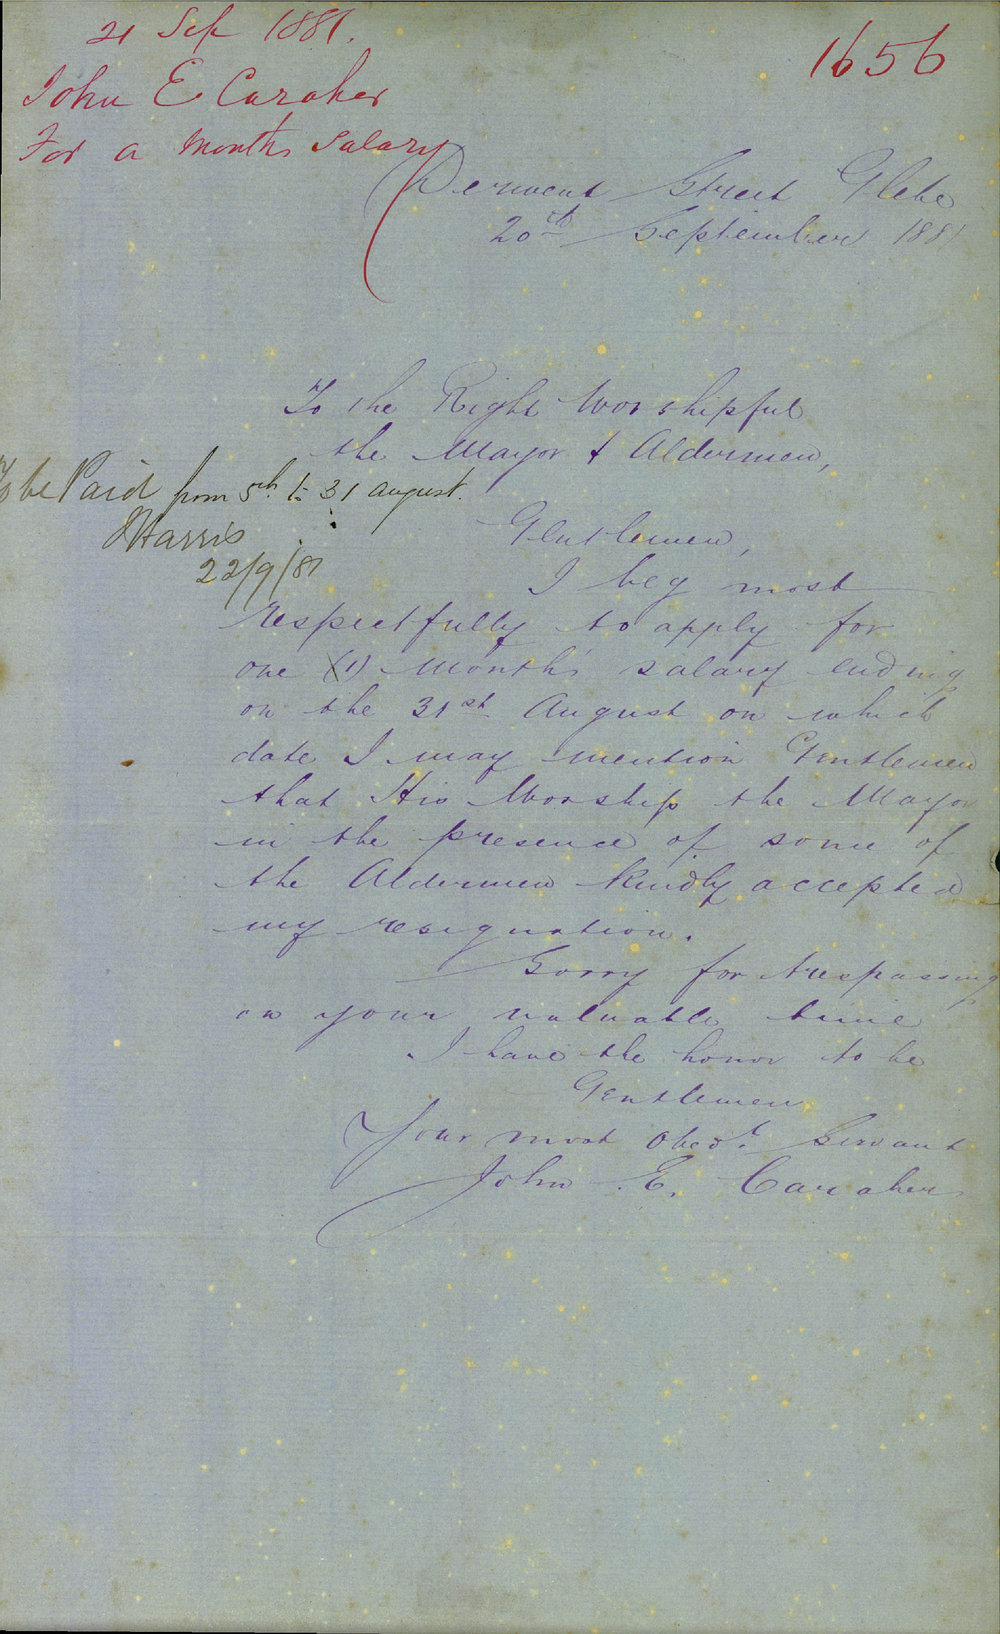 21 Sep 1881.
1656
John E Caraher
For a months Salary
Derwent Street Glebe
20th September 1881
To the Right Worshipful
the Mayor & Aldermen,
To be Paid from 5th to 31 August.
JHarris
22/9/81
Gentlemen,
I beg most
respectfully to apply for
one (1) month's salary ending
on the 31st August on which
date I may mention Gentlemen
that His Worship the Mayor
in the presence of some of
the Aldermen kindly accepted
my resignation.
Sorry for trespassing
on your valuable time
I have the honor to be
Gentlemen
Your most obedt. Servant
John E. Caraher